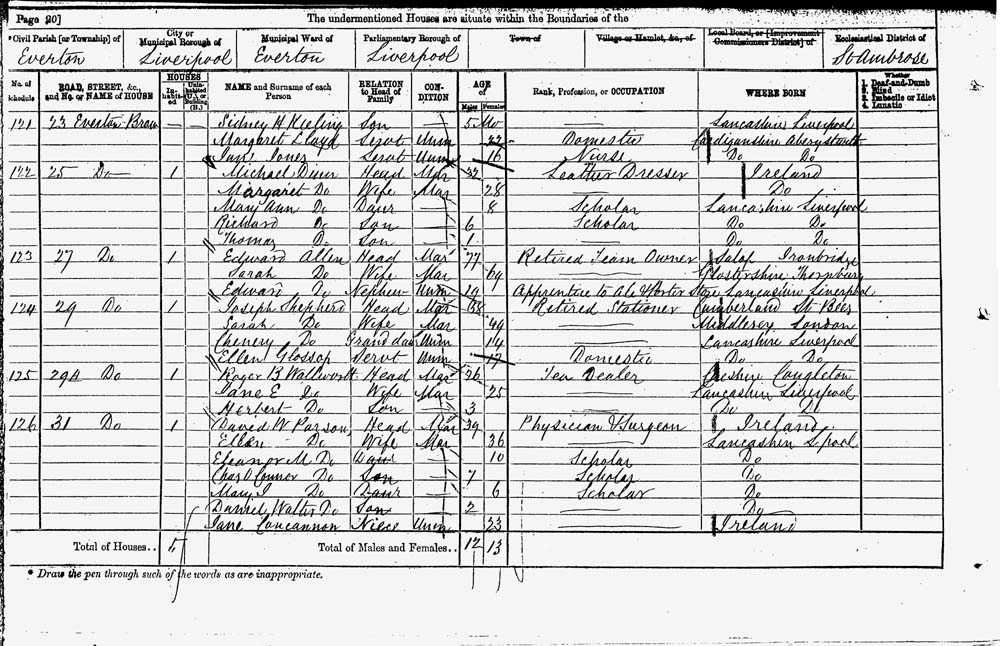 Page 20] The undermentioned Houses are situate within the Boundaries of the
Civil Parish [or Township] of City or Municipal Borough of Municipal Ward of Parliamentary Borough of Town of Village or Hamlet, &c., of Local Board, or [Improvement Commissioners District] of Ecclesiastical District of
Everton Liverpool Everton Liverpool St Ambrose
No. of Schedule ROAD, STREET, &c., and No. or NAME of HOUSE HOUSES Inhabited Uninhabited (U.), or Building (B.) NAME and Surname of each Person RELATION to Head of Family CONDITION AGE of Males Females Rank, Profession, or OCCUPATION WHERE BORN Whether 1. Deaf-and-Dumb 2. Blind 3. Imbecile or Idiot 4. Lunatic
121 23 Everton Brow Sidney H Keeling Son 5 Mo Lancashire Liverpool
Margaret Lloyd Servt Unm 22 Domestic Cardiganshire Aberystwith
Jane Jones Servt Unm 16 Nurse Do Do
122 25 Do 1 Michael Head Mar 32 Leather Dresser Ireland
Margaret Do Wife Mar 28 Do
Mary Ann Do Daur 8 Scholar Lancashire Liverpool
Richard Do Son 6 Scholar Do Do
Thomas Do Son 1 Do Do
123 27 Do 1 Edward Allen Head Mar 77 Retired Team Owner Salop Ironbridge
Sarah Do Wife Mar 69 Glostershire Thornbury
Edward Do Nephew Unm 19 Apprentice to Ale & Porter Store Lancashire Liverpool
124 29 Do 1 Joseph Shepherd Head Mar 58 Retired Stationer Cumberland St Bees
Sarah Do Wife Mar 49 Middlesex London
Do Grand daur Unm 14 Lancashire Liverpool
Ellen Glossop Servt Unm 17 Domestic Do Do
125 29A Do 1 Roger B Wallworth Head Mar 26 Tea Dealer Cheshire Congleton
Jane E Do Wife Mar 25 Lancashire Liverpool
Herbert Do Son 3 Do Do
126 31 Do 1 David W Parsons Head Mar 39 Physician & Surgeon Ireland
Ellen Do Wife Mar 36 Lancashire Lpool
Eleanor M. Do Daur 10 Scholar Do
Chas O Connor Do Son 7 Scholar Do
Mary J Do Daur 6 Scholar Do
Daniel Walter Do Son 2 Do
Jane Concannon Niece Unm 23 Ireland
Total of Houses.. 5 Total of Males and Females.. 12 13
* Draw the pen through such of the words as are inappropriate.